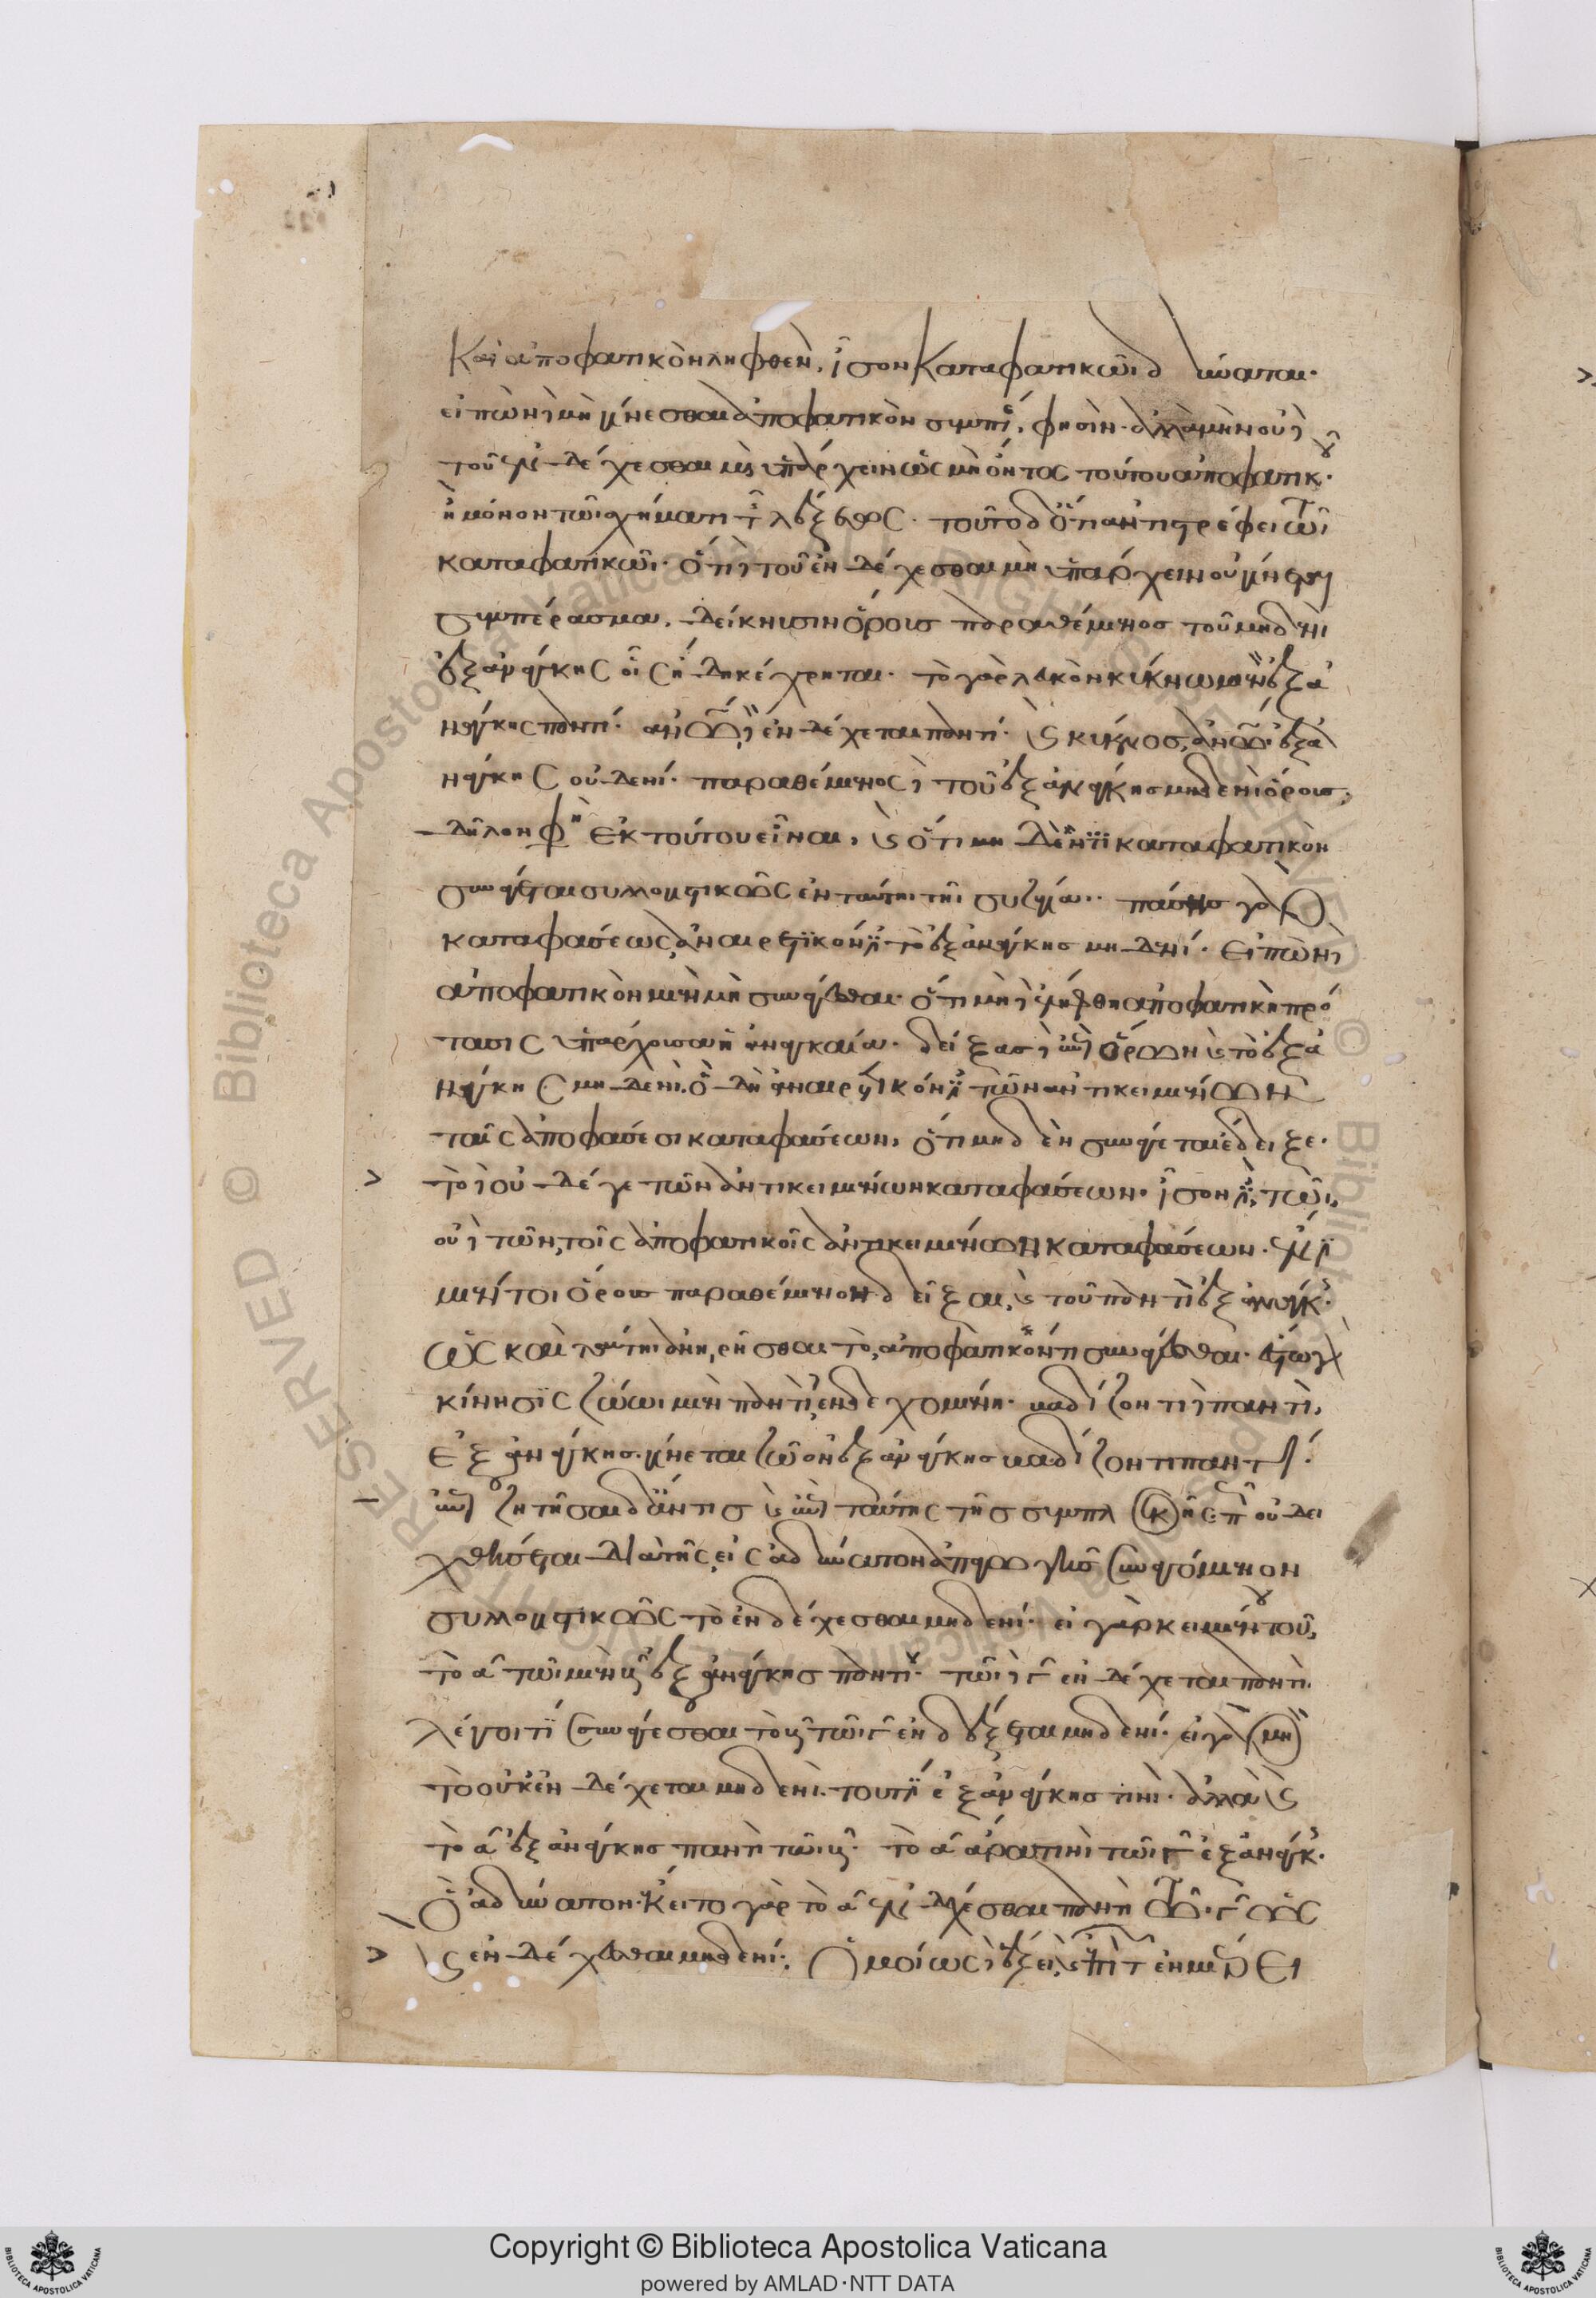 Καὶ ἀποφατικὸν ληφθὲν, ἴσον καταφατικῶι δύναται·
εἰπὼν δὲ μὴ γίνεσθαι ἀποφατικὸν συμπέρασμα, φησίν· ἀλλὰ μὴν οὐδὲ
τοῦ ἐνδέχεσθαι μὴ ὑπάρχειν ὡς μὴ ὄντος τούτου ἀποφατικοῦ·
ἢ μόνον τῶι σχήματι τῆς λέξεως· τοῦτο δὲ ὅτι ἀντιστρέφει τῶι
καταφατικῶι· ὅτι δὲ τοῦ ἐνδέχεσθαι μὴ ὑπάρχειν οὐ γίνεται
συμπέρασμα, δείκνυσιν ὅροις παραθέμενος τοῦ μηδενὶ
ἐξ ἀνάγκης οἷς ἤδη κέχρηται· τὸ γὰρ λευκὸν κύκνωι μὲν ἐξ ἀ
νάγκης παντί· ἀνθρώπωι δὲ ἐνδέχεται παντί· καὶ κύκνος, ἀνθρώπωι ἐξ ἀ
νάγκης οὐδενί· παραθέμενος δὲ τοῦ ἐξ ἀνάγκης μηδενὶ ὅρους
δῆλόν φησιν ἐκ τούτου εἶναι, καὶ ὅτι μηδὲ ἕν τι καταφατικὸν
συνάγεται συλλογιστικῶς ἐν ταύτηι τῆι συζυγίαι· πάσης γὰρ
καταφάσεως, ἀναιρετικόν ἐστι τὸ ἐξ ἀνάγκης μηδενί· εἰπὼν δὲ
ἀποφατικὸν μὲν μὴ συνάγεσθαι· ὅτι μὴ δὲ ἐλήφθη ἀποφατικὴ πρό
τασις ὑπάρχουσα ἢ ἀναγκαία· δείξας δὲ διὰ ὅρων καὶ τὸ ἐξ ἀ
νάγκης μηδενί· ὃ δὴ ἀναιρετικόν ἐστι τῶν ἀντικειμένων
ταῖς ἀποφάσεσι καταφάσεων, ὅτι μηδὲν συνάγεται ἔδειξε·
τὸ δὲ οὐδέ γε τῶν ἀντικειμένων καταφάσεων· ἴσον ἐστὶ, τῶι,
οὐδὲ τῶν, τοῖς ἀποφατικοῖς ἀντικειμένων καταφάσεων· ἔνεστι
μέντοι ὅρους παραθέμενον δεῖξαι, καὶ τοῦ παντὶ ἐξ ἀνάγκης·
ὡς καὶ ταύτηι ἀνηιρῆσθαι τὸ, ἀποφατικόν τι συνάγεσθαι·
κίνησις ζώωι μὲν παντὶ, ἐνδεχομένη· βαδίζοντι δὲ παντὶ,
ἐξ ἀνάγκης· γίνεται ζῶον ἐξ ἀνάγκης βαδίζοντι παντί·
ζητῆσαι δ' ἄν τις καὶ διὰ ταύτης τῆς συμπλοκῆς εἰ οὐ δει
χθήσεται δι' αὐτῆς, εἰς ἀδύνατον ἀπαγωγῆς συναγόμενον
συλλογιστικῶς τὸ ἐνδέχεσθαι μηδενί· εἰ γὰρ κειμένου τοῦ,
τὸ α τῶι μὲν β ἐξ ἀνάγκης παντί· τῶι δὲ γ ἐνδέχεται παντὶ
λέγοι τις συνάγεσθαι τὸ β τῶι γ ἐνδέξεται μηδενί· εἰ γὰρ μὴ
τὸ οὐκ ἐνδέχεται μηδενὶ· τουτέστι ἐξ ἀνάγκης τινί· ἀλλὰ καὶ
τὸ α ἐξ ἀνάγκης παντὶ τῶι β· τὸ α ἄρα τινὶ τῶι γ ἐξ ἀνάγκης·
ὃ ἀδύνατον· κεῖτο γὰρ τὸ α ἐνδέχεσθαι παντὶ τῶι γ ὡς
καὶ ἐνδέχεσθαι μηδενί· Ὁμοίως δὲ ἕξει, καὶ ἐπὶ τῶν ἐν μέρει